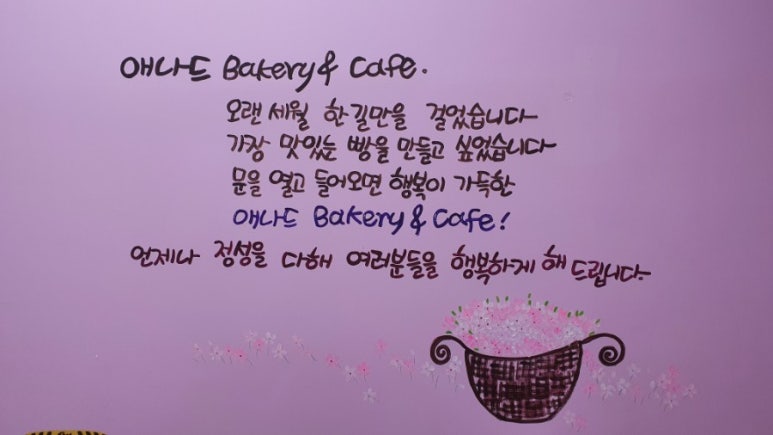 애나드 Bakery & Cafe.
오랜 세월 한길만을 걸었습니다
가장 맛있는 빵을 만들고 싶었습니다
문을 열고 들어오면 행복이 가득한
애나드 Bakery & Cafe!
언제나 정성을 다해 여러분들을 행복하게 해 드립니다.